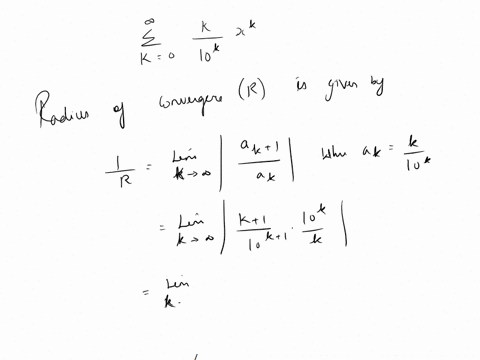 ∞
∑ k/10^k x^k
K = 0
Radius of convergere (R) is given by
1/R = Lim k→∞ | a_{k+1} / a_k | Whe a_k = k/10^k
= Lim k→∞ | k+1/10^{k+1} · 10^k/k |
= Lim k.